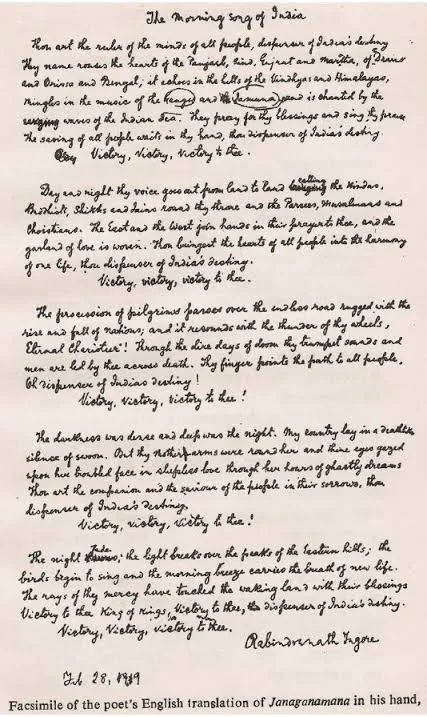 The Morning Song of India
Thou art the ruler of the minds of all people, dispenser of India's destiny
Thy name rouses the hearts of the Punjab, Sind, Gujrat and Maratha, of Dravid
and Orissa and Bengal; it echoes in the hills of the Vindhyas and Himalayas,
mingles in the music of the Ganges and the Jamuna and is chanted by the
waves of the Indian Sea. They pray for thy blessings and sing thy praise
The saving of all people waits in thy hand, thou dispenser of India's destiny.
Victory, Victory, Victory to thee.
Day and night thy voice goes out from land to land calling the Hindus,
Buddhists, Shikhs and Jains round thy throne and the Parsees, Musalmans and
Christians. The East and the West join hands in their prayer to thee, and the
garland of love is woven. Thou bringest the hearts of all people into the harmony
of one life, thou dispenser of India's destiny.
Victory, victory, victory to thee.
The procession of pilgrims passes over the endless road rugged with the
rise and fall of nations; and it resounds with the thunder of thy wheels,
Eternal Charioteer! Through the dire days of doom thy trumpet sounds and
men are led by thee across death. Thy finger points the path to all people,
Oh dispenser of India's destiny!
Victory, Victory, Victory to thee!
The darkness was dense and deep was the night. My country lay in a deathlike
silence of swoon. But thy mother arms were round her and thine eyes gazed
upon her troubled face in sleepless love through her hours of ghastly dreams
Thou art the companion and the saviour of the people in their sorrows, thou
dispenser of India's destiny.
Victory, victory, victory to thee!
The night fade; the light breaks over the peaks of the Eastern hills; the
birds begin to sing and the morning breeze carries the breath of new life.
The rays of thy mercy have touched the waking land with their blessings
Victory to thee King of Kings, Victory to thee, dispenser of India's destiny.
Victory, Victory, victory to thee.
Rabindranath Tagore
Feb. 28, 1919
Facsimile of the poet's English translation of Janaganamana in his hand,